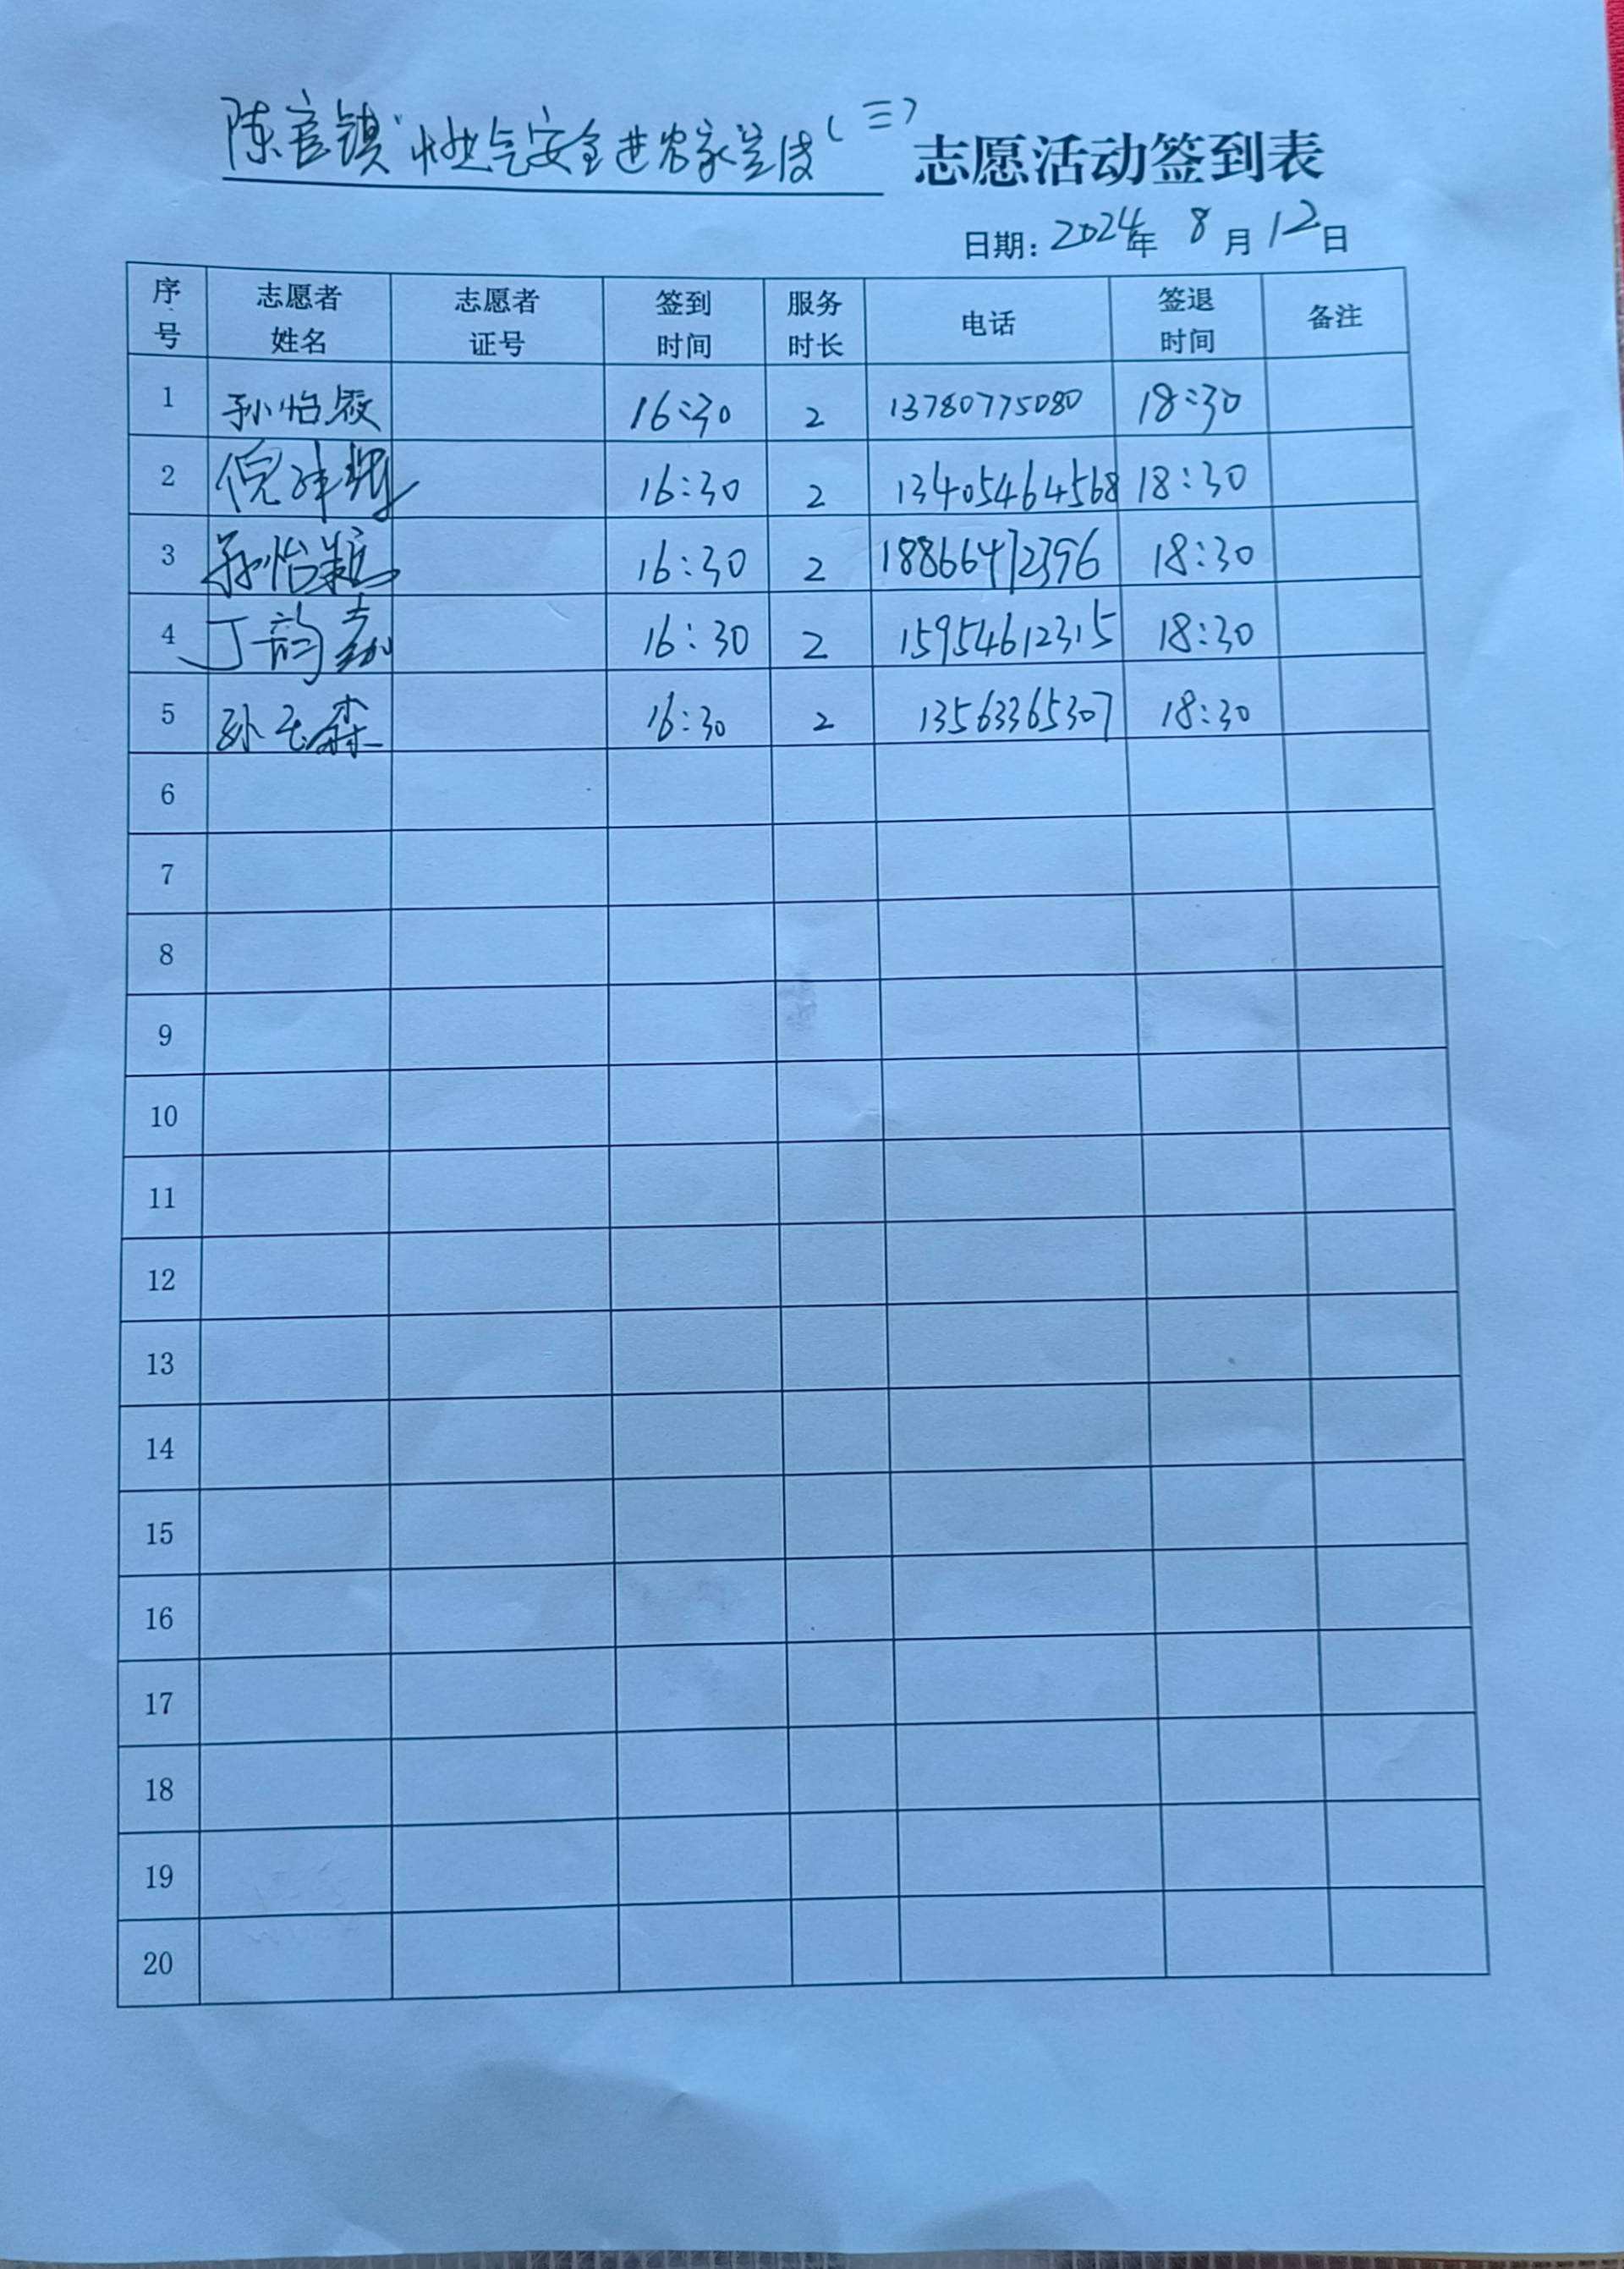 陈官镇"燃气安全进农家宣传(三) 志愿活动签到表
日期: 2024年 8月12日
序号 志愿者姓名 志愿者证号 签到时间 服务时长 电话 签退时间 备注
1 孙怡 16:30 2 13780775080 18:30
2 倪 16:30 2 13405464568 18:30
3 孙怡颖 16:30 2 18866472396 18:30
4 丁韵嘉 16:30 2 15954612315 18:30
5 孙玉森 16:30 2 13563365307 18:30
6
7
8
9
10
11
12
13
14
15
16
17
18
19
20